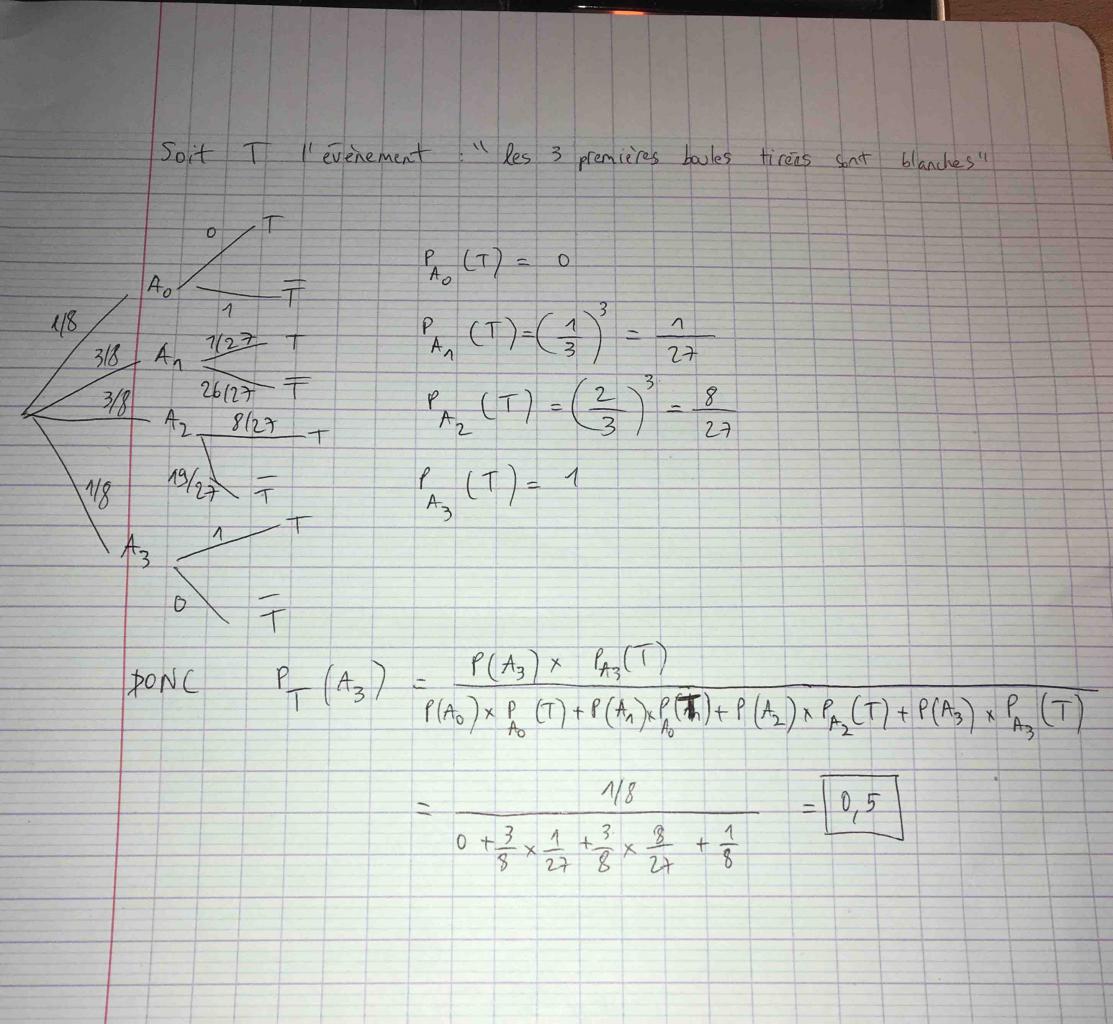 Soit T l'évènement : "les 3 premières boules tirées sont blanches"
0 T
A₀
1 T̅
1/8
3/8 A₁ 1/27 T
26/27 T̅
3/8 A₂ 8/27 T
19/27 T̅
1/8
A₃ 1 T
0 T̅
P_A₀ (T) = 0
P_A₁ (T) = (1/3)³ = 1/27
P_A₂ (T) = (2/3)³ = 8/27
P_A₃ (T) = 1
DONC P_T (A₃) = P(A₃) × P_A₃(T) / P(A₀) × P_A₀ (T) + P(A₁) × P_A₀(T) + P(A₂) × P_A₂(T) + P(A₃) × P_A₃(T)
= 1/8 / 0 + 3/8 × 1/27 + 3/8 × 8/27 + 1/8 = 0,5